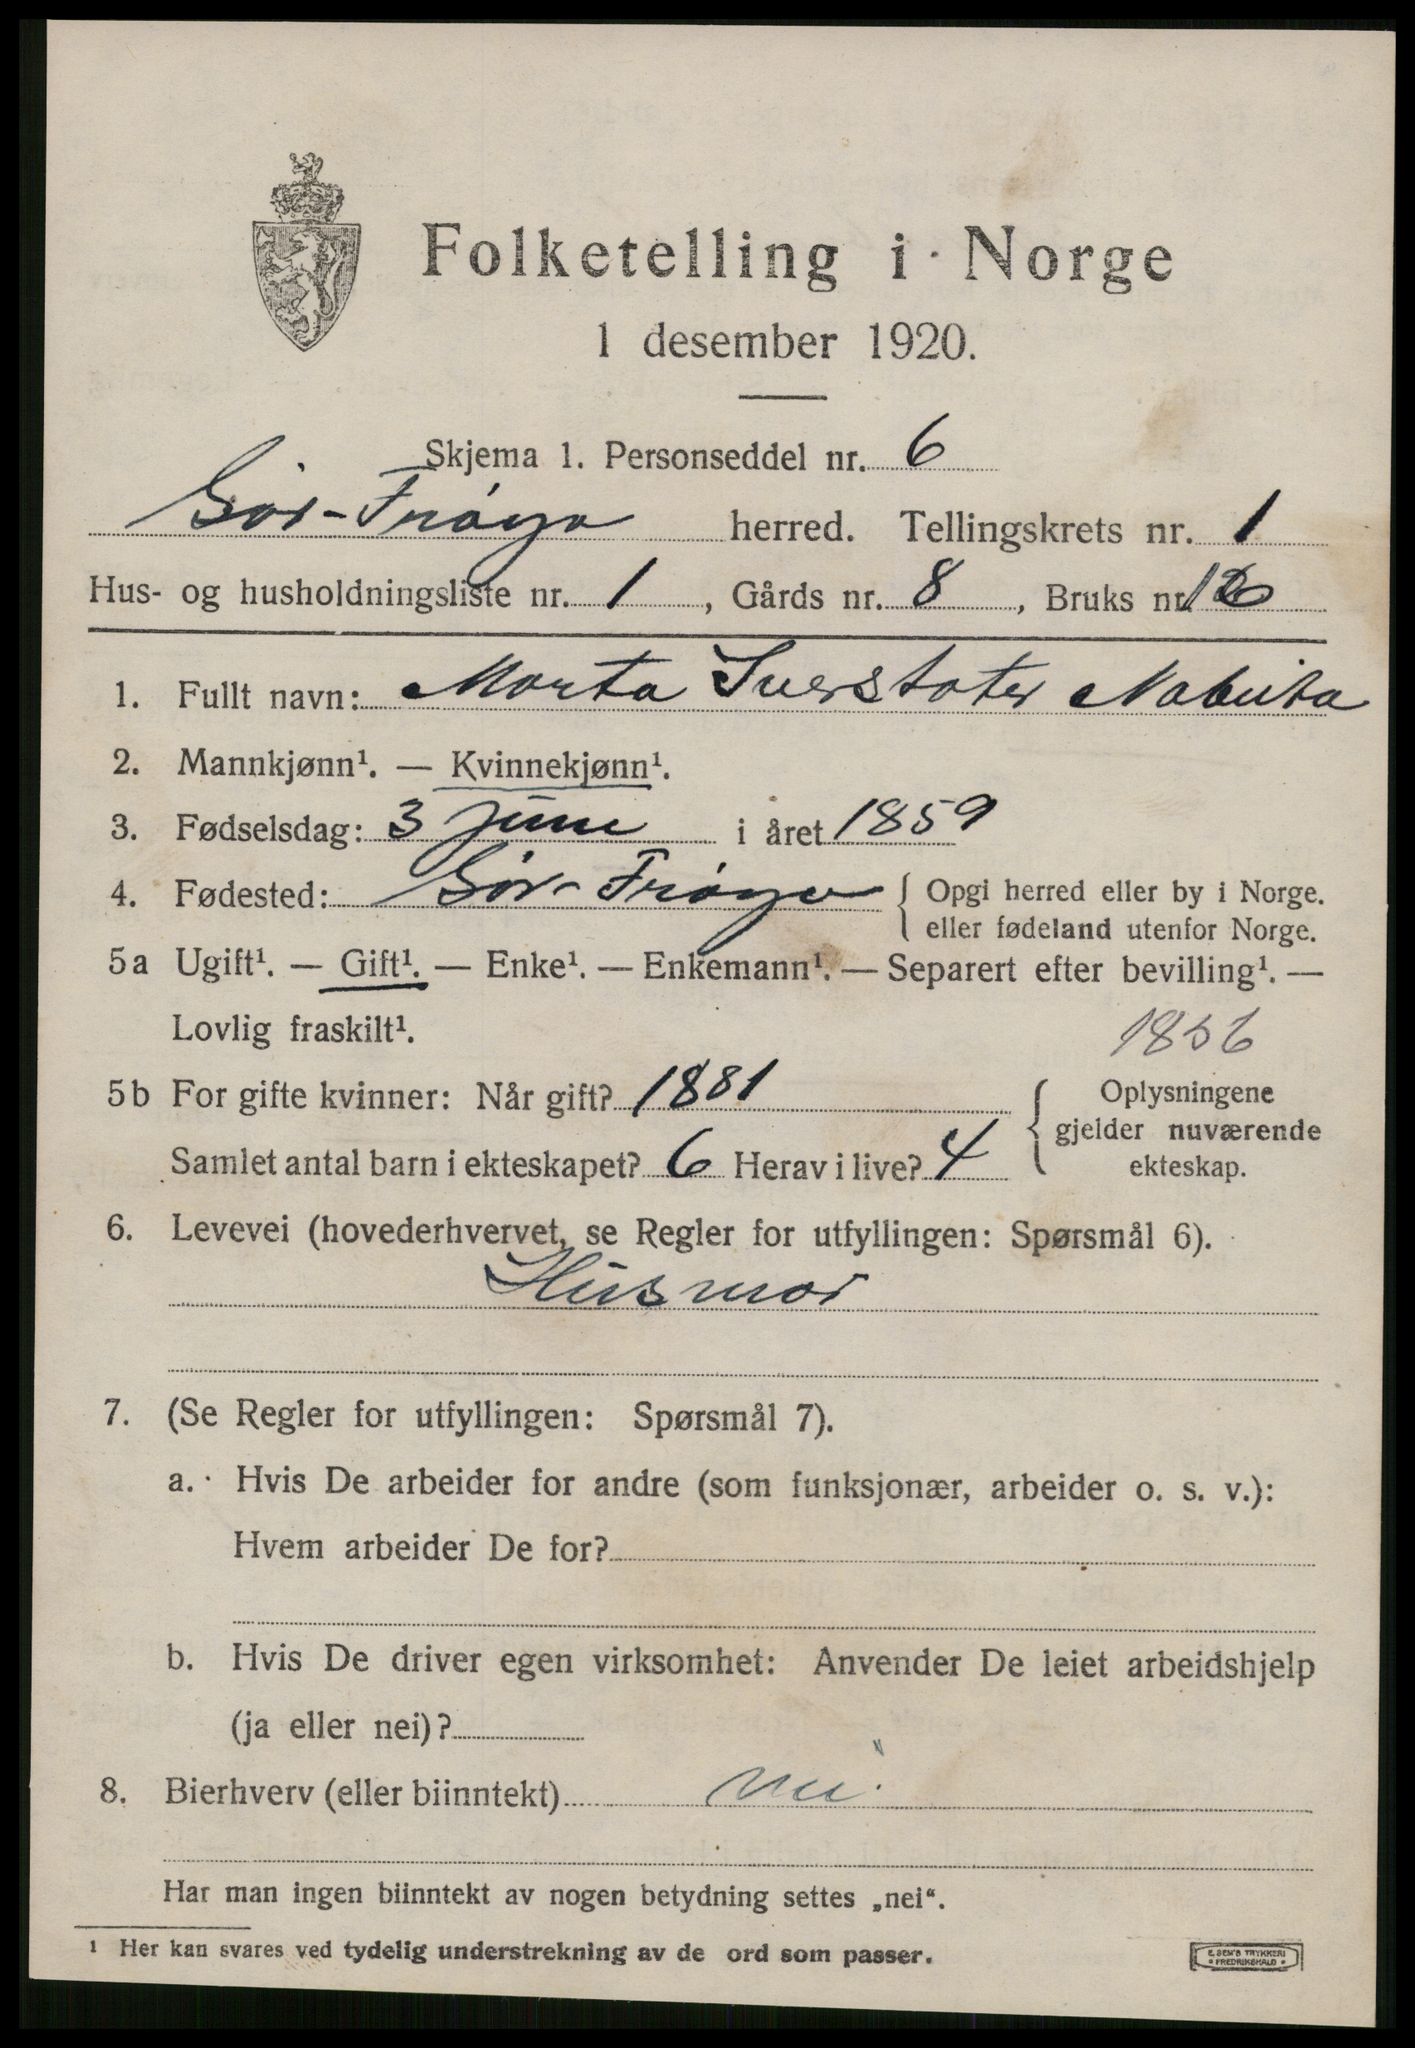 Folketelling i Norge
1 desember 1920.
Skjema 1. Personseddel nr. 6
Sør-Frøya herred. Tellingskrets nr. 1
Hus- og husholdningsliste nr. 1, Gårds nr. 8, Bruks nr.
1. Fullt navn: Marta Iversdater Nabeita
2. Mannkjønn¹. — Kvinnekjønn¹.
3. Fødselsdag: 3 Juni i året 1859
4. Fødested: Sør-Frøya { Opgi herred eller by i Norge.
eller fødeland utenfor Norge.
5a Ugift¹. — Gift¹. — Enke¹. — Enkemann¹. — Separert efter bevilling¹. —
Lovlig fraskilt¹.
1856
5b For gifte kvinner: Når gift? 1881 { Oplysningene
gjelder nuværende
Samlet antal barn i ekteskapet? 6 Herav i live? 4 ekteskap.
6. Levevei (hovederhvervet, se Regler for utfyllingen: Spørsmål 6).
Husmor
7. (Se Regler for utfyllingen: Spørsmål 7).
a. Hvis De arbeider for andre (som funksjonær, arbeider o. s. v.):
Hvem arbeider De for?
b. Hvis De driver egen virksomhet: Anvender De leiet arbeidshjelp
(ja eller nei)?
8. Bierhverv (eller biinntekt) nei
Har man ingen biinntekt av nogen betydning settes „nei“.
¹ Her kan svares ved tydelig understrekning av de ord som passer.
E. SEM'S TRYKKERI
FREDRIKSHALD